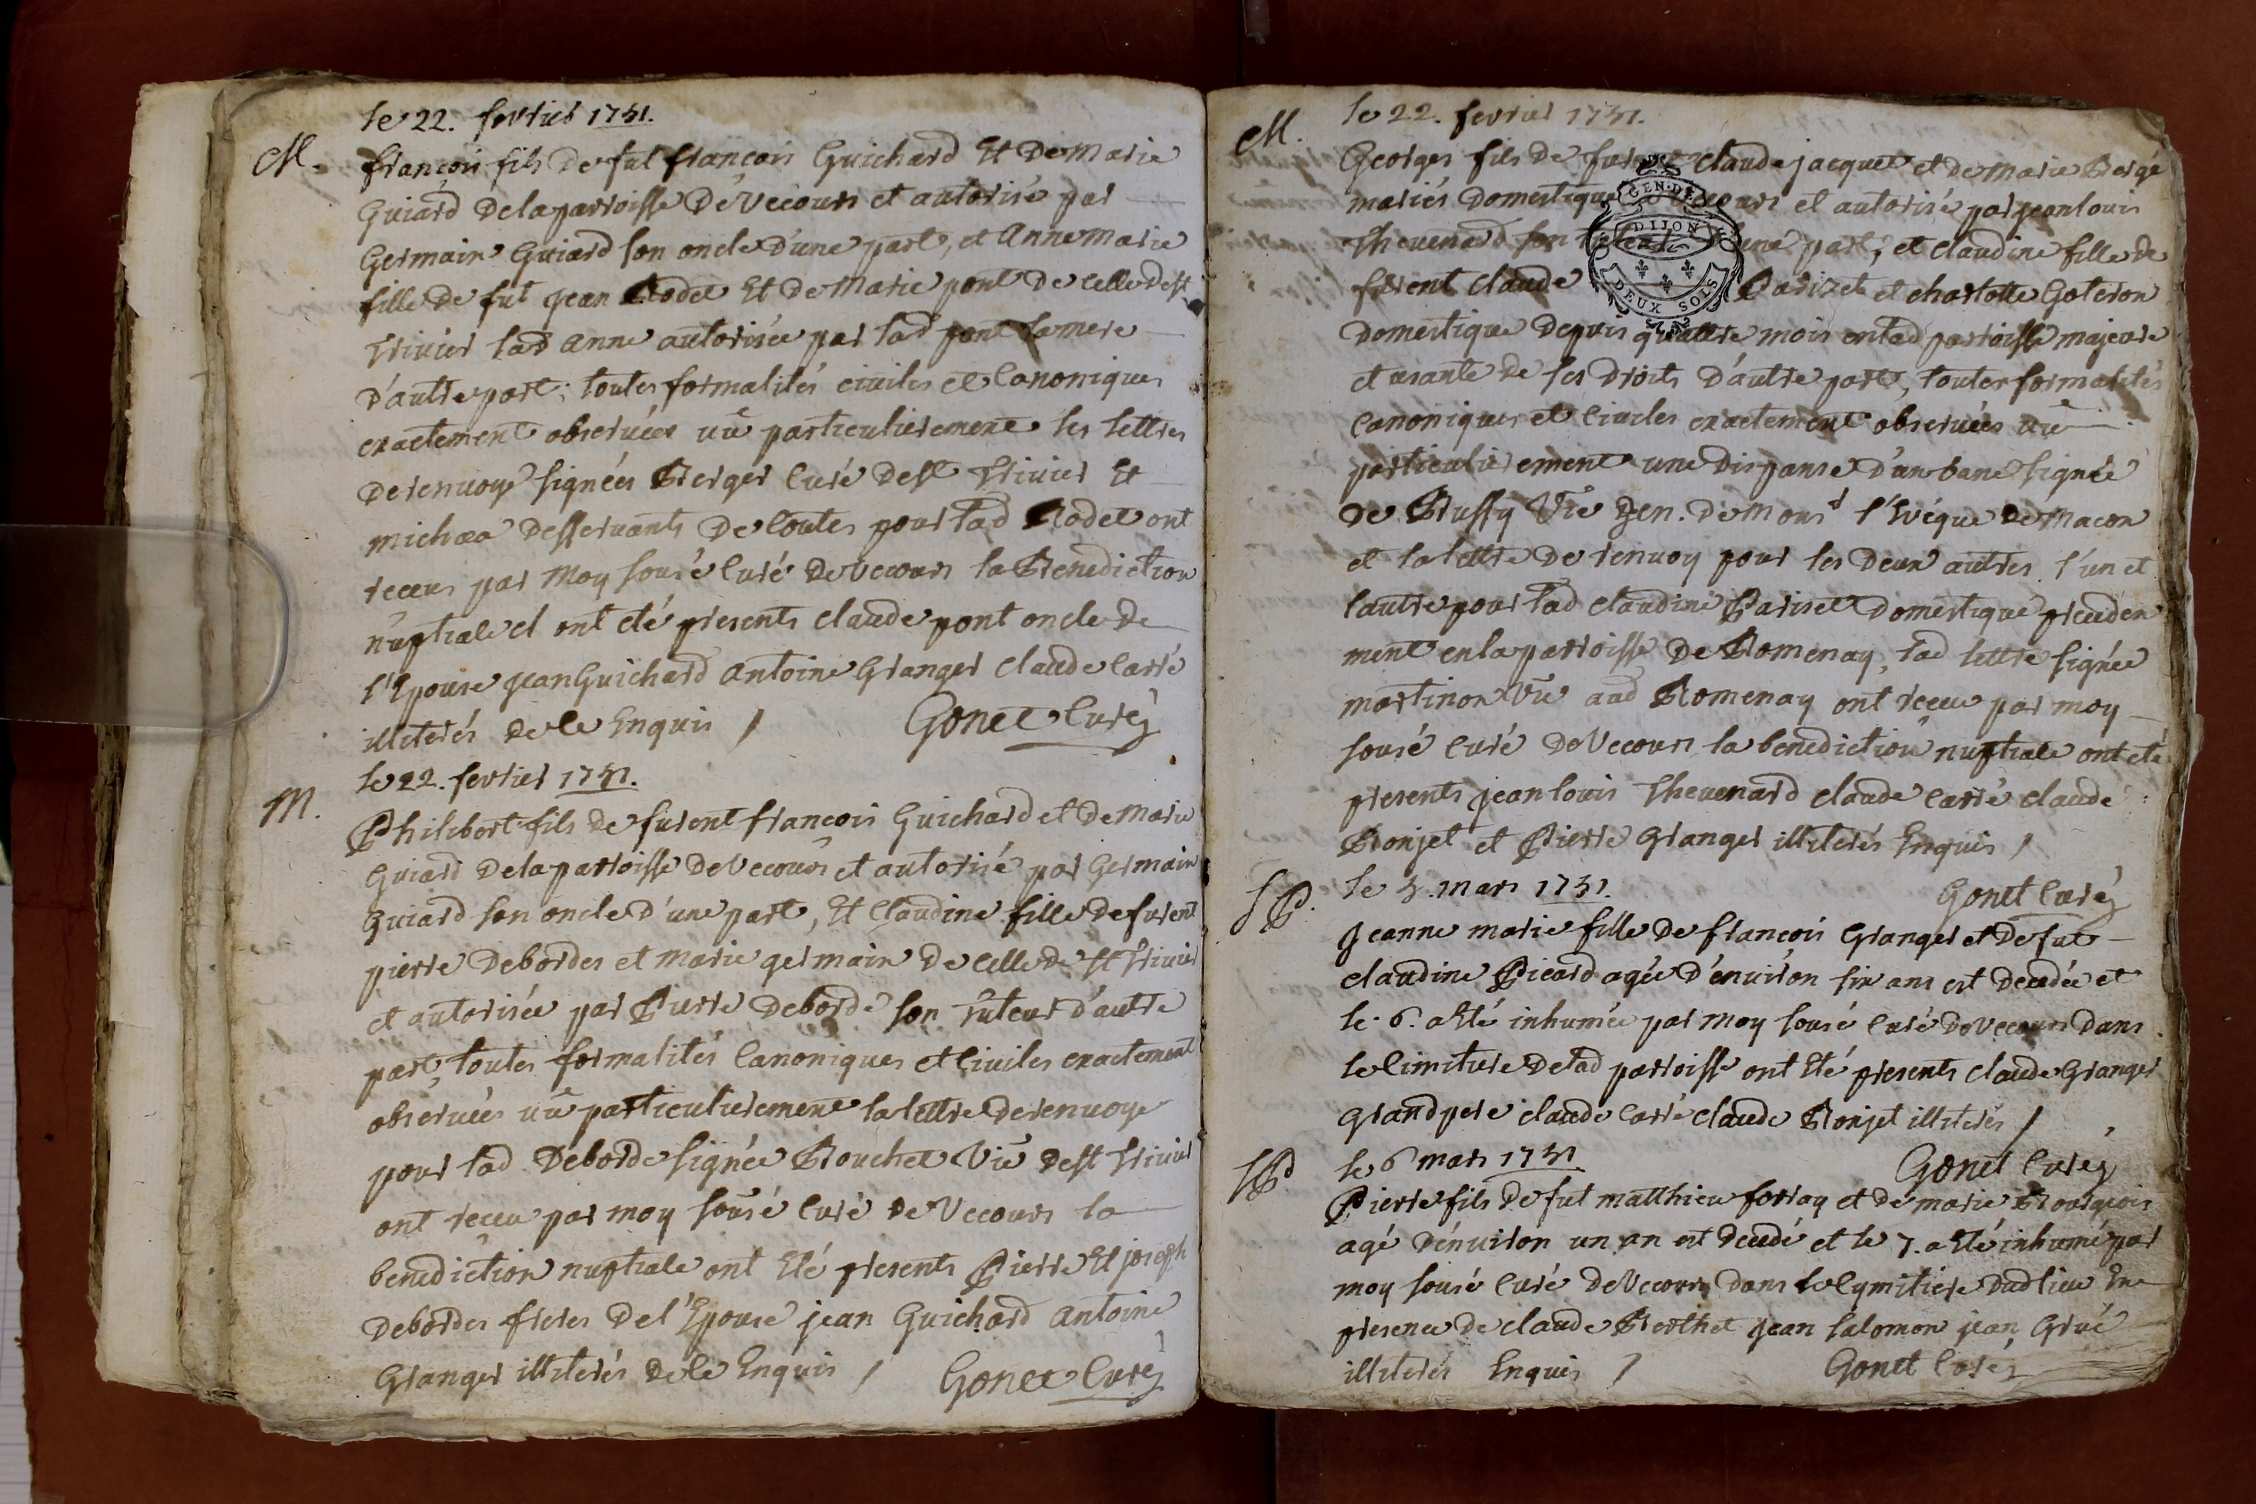 le 22. fevrier 1751.
M. françois fils de fut françois Guichard Et de Marie
Guiard de la parroisse de Vecours et autorisé par
Germain Guiard son oncle d'une part, et Anne marie
fille de fut jean Rodet Et de Marie pont de celle de st
trivier lad anne autorisée par lad pont sa mere
d'autre part; toutes formalités civiles et Canoniques
exactement observées vû particulierement les lettres
de renvoye signées Berger Curé de st trivier Et
desservants de Coutes pour lad Rodet ont
receus par moy sousé Curé de Vecours la Benediction
nuptiale et ont eté presents claude pont oncle de
l'Epouse jean Guichard antoine Granger claude Carré
illeterés de ce Enquis / Gonet Curé
le 22. fevrier 1751.
M. Philibert fils de furent françois Guichard et de Marie
Guiard de la parroisse de Vecours et autorisé par Germain
guiard son oncle d'une part, Et Claudine fille de furent
pierre Debordes et marie germain de celle de st trivier
et autorisée par Pierre deborde son tuteur d'autre
part, toutes formalités Canoniques et Civiles exactement
observées vû particulierement la lettre de renvoye
pour lad Deborde signée Brouchet Vic de st trivier
ont receu par moy sousé Curé de Vecours la
benediction nuptiale ont Eté presents Pierre Et joseph
debordes freres de l'Epouse jean Guichard antoine
Granger illeterés de ce Enquis / Gonet Curé
le 22. fevrier 1751.
M. Georges fils de furent claude jacquet et de Marie Bergé
mariés domestique Vecours et autorisé par jean louis
Thevenard son d'une part, et claudine fille de
GEN. DE
DIJON
DEUX SOLS
furent claude Parizet et charlotte Goteron
domestique depuis quattre mois en lad parroisse majeure
et usante de ses droits d'autre part, toutes formalités
canoniques et Civiles exactement observées vû
particulierement une dispanse d'un banc signée
de Bussy Vic gen. de Monsr l'Evéque de Macon
et la lettre de renvoy pour les deux autres l'un et
lautre pour lad claudine Pariset domestique precedem
ment en la parroisse de Romenay, lad lettre signée
martinon Vic aud Romenay ont receu par moy
sousé Curé de Vecours la benediction nuptiale ont eté
presents jean louis Thevenard claude Carré claude
Bonjet et Pierre Granger illeterés Enquis /
SP. le 5. mars 1751. Gonet Curé
Jeanne marie fille de françois Granger et de fut
claudine Picard agée d'environ six ans est decedée et
le 6. a Eté inhumée par moy sousé Curé de Vecours dans
le Cimitiere de lad parroisse ont Eté presents claude Granger
grandpere claude Carré claude Bonjet illeterés /
SP le 6 mars 1751 Gonet Curé
Pierre fils de fut matthieu forray et de marie Bourgeois
agé denviron un an est decedé et le 7. a Eté inhumé par
moy sousé Curé de Vecours dans le Cymitiere dud lieu En
presence de claude Berthet jean salomon jean Grué
illeterés Enquis / Gonet Curé